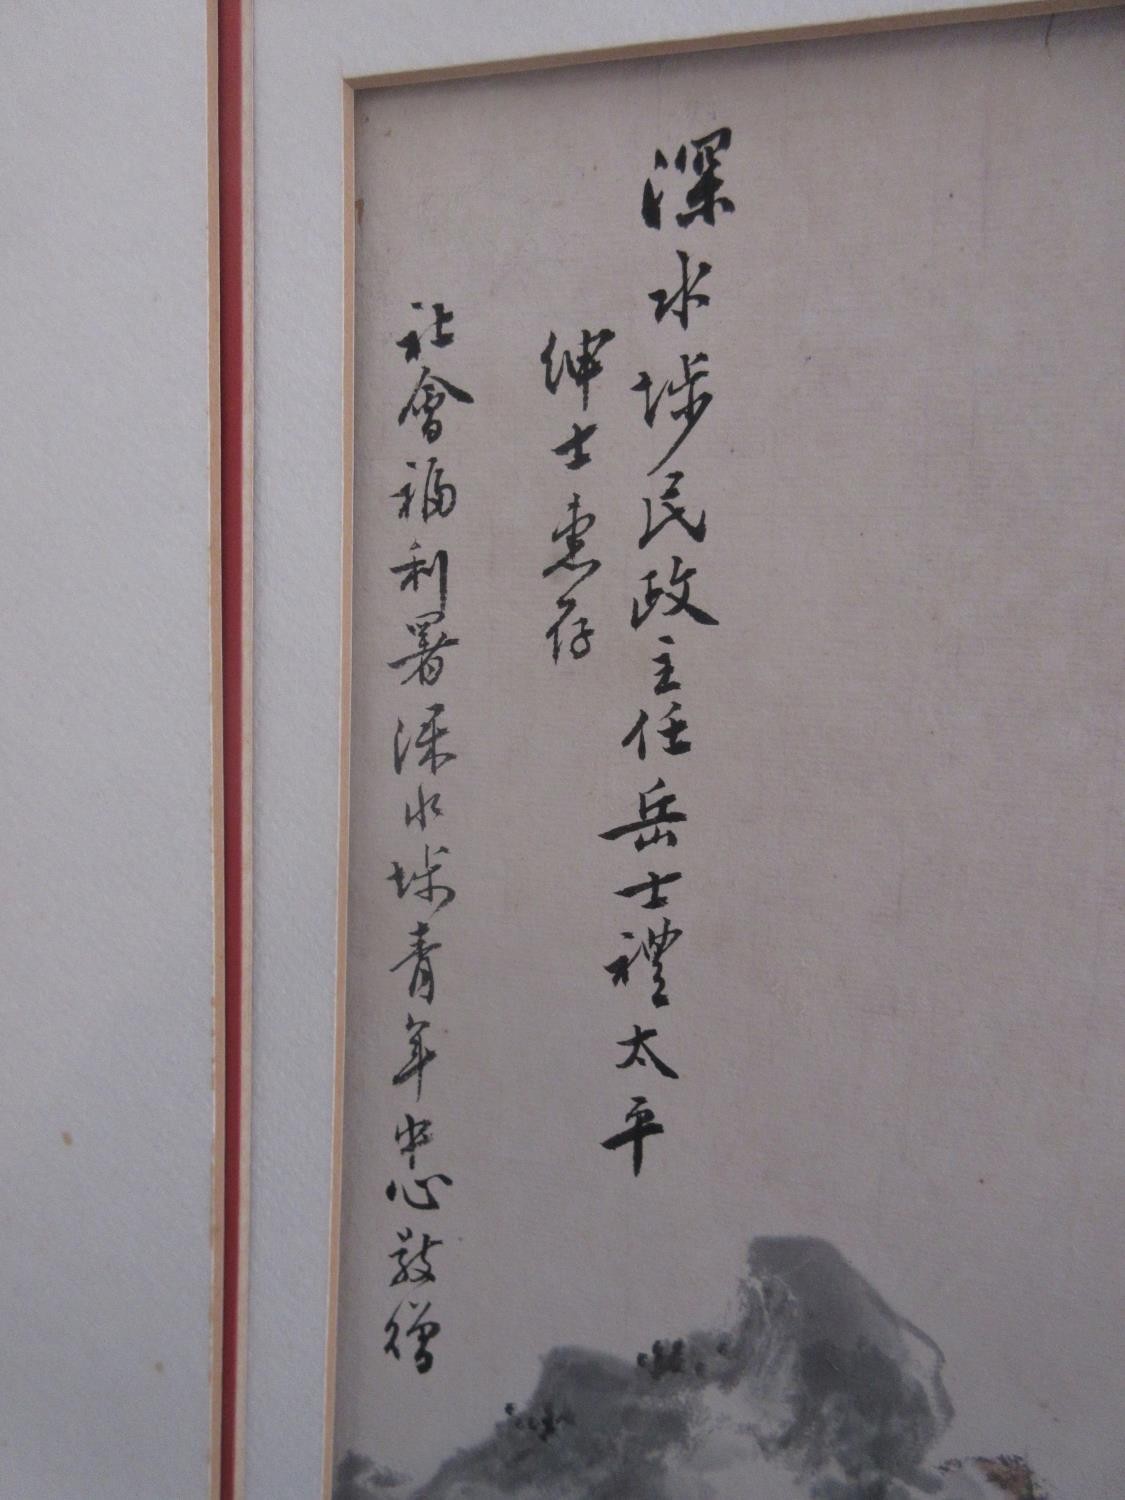 深水埗民政主任岳士禮太平
紳士惠存
社會福利署深水埗青年中心敬贈